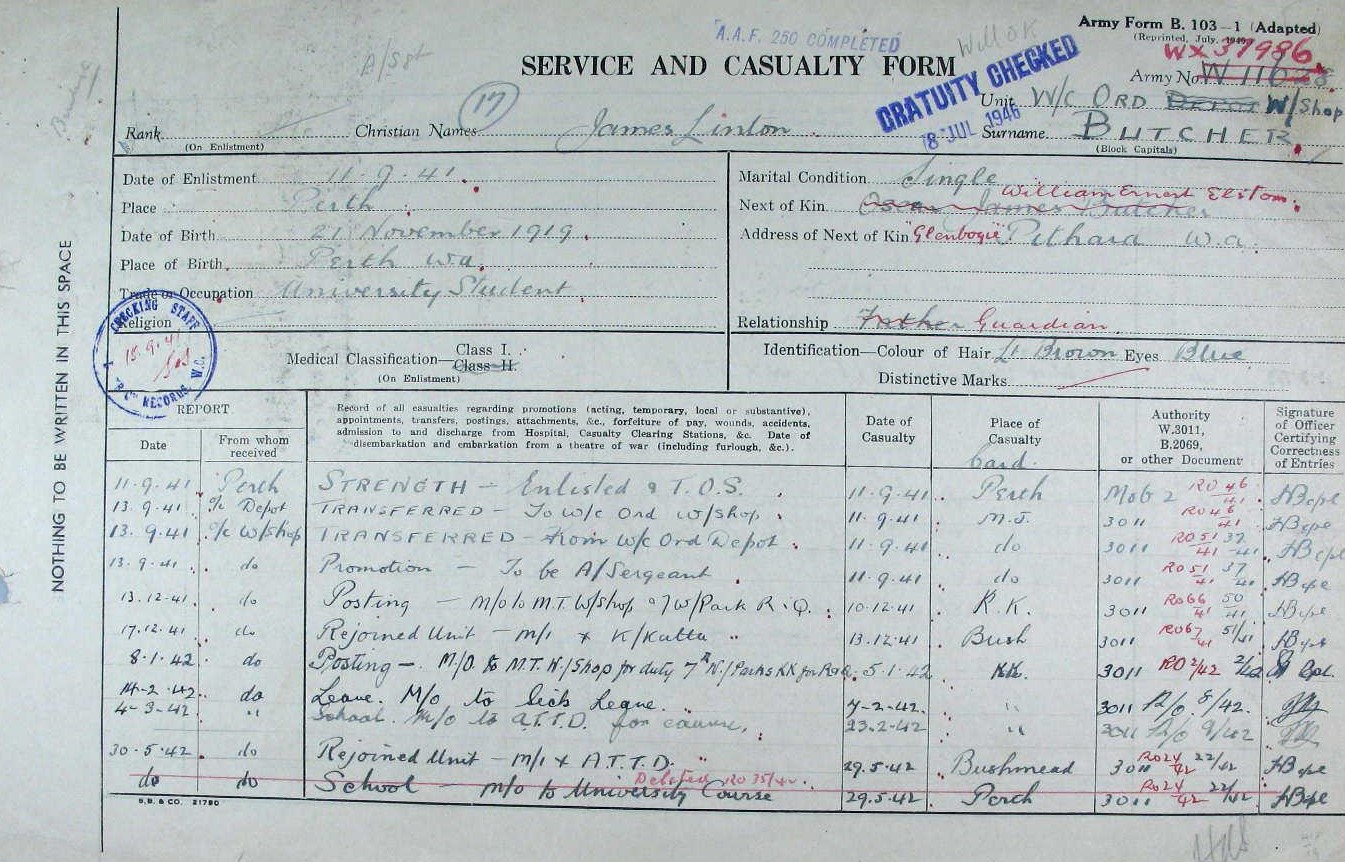 A.A.F. 250 COMPLETED
Will OK
Army Form B. 103—1 (Adapted)
(Reprinted, July,
A/Sgt
SERVICE AND CASUALTY FORM
GRATUITY CHECKED
8 JUL 1946
WX37986
Army No. W 11628
Unit W/C ORD DEPOT W/Shop
17
Rank
(On Enlistment)
Christian Names James Linton
Surname BUTCHER
(Block Capitals)
Date of Enlistment 11.9.41
Place Perth
Date of Birth 21 November 1919
Place of Birth Perth W.A.
Trade or Occupation University Student
Religion
CHECKING STAFF
RECORDS W.C.
Marital Condition Single
William Ernest
Next of Kin Oscar James Butcher
Address of Next of Kin Glenbogie Pithara W.A.
Relationship Father Guardian
Medical Classification—Class I.
Class II.
(On Enlistment)
Identification—Colour of Hair Lt Brown Eyes Blue
Distinctive Marks
NOTHING TO BE WRITTEN IN THIS SPACE
REPORT
Date
From whom received
Record of all casualties regarding promotions (acting, temporary, local or substantive),
appointments, transfers, postings, attachments, &c., forfeiture of pay, wounds, accidents,
admission to and discharge from Hospital, Casualty Clearing Stations, &c. Date of
disembarkation and embarkation from a theatre of war (including furlough, &c.).
Date of Casualty
Place of Casualty
Card.
Authority W.3011, B.2069, or other Document
Signature of Officer Certifying Correctness of Entries
11.9.41 Perth STRENGTH — Enlisted & T.O.S. 11.9.41 Perth Mob 2 RO 46/41
13.9.41 o/c Depot TRANSFERRED — To W/C Ord W/Shop 11.9.41 M.J. 3011 RO 46/41
13.9.41 o/c W/Shop TRANSFERRED — From W/C Ord Depot 11.9.41 do 3011 RO 51/41 37/41
13.9.41 do Promotion — To be A/Sergeant 11.9.41 do 3011 RO 51/41 37/41
13.12.41 do Posting — M/O to M.T. W/Shop 10.12.41 K.K. 3011 RO 66/41 50/41
17.12.41 do Rejoined Unit — M/I × K/Katta 13.12.41 Bush 3011 RO 67/41 51/41
8.1.42 do Posting — M/O to M.T. W/Shop for duty 5.1.42 KK. 3011 RO 2/42 2/42
14-2-42 do Leave. M/O to Sick Leave. 7-2-42 " 3011 R/O 8/42.
4-3-42 " School. M/O to A.T.T.D. for course, 23.2.42 " 3011 R/O 9/42
30.5.42 do Rejoined Unit — M/I × A.T.T.D. 29.5.42 Bushmead 3011 RO 24/42 22/42
Deleted RO 35/42
do do School — M/O to University Course 29.5.42 Perth 3011 RO 24/42 22/42
S.B. & CO. 21790